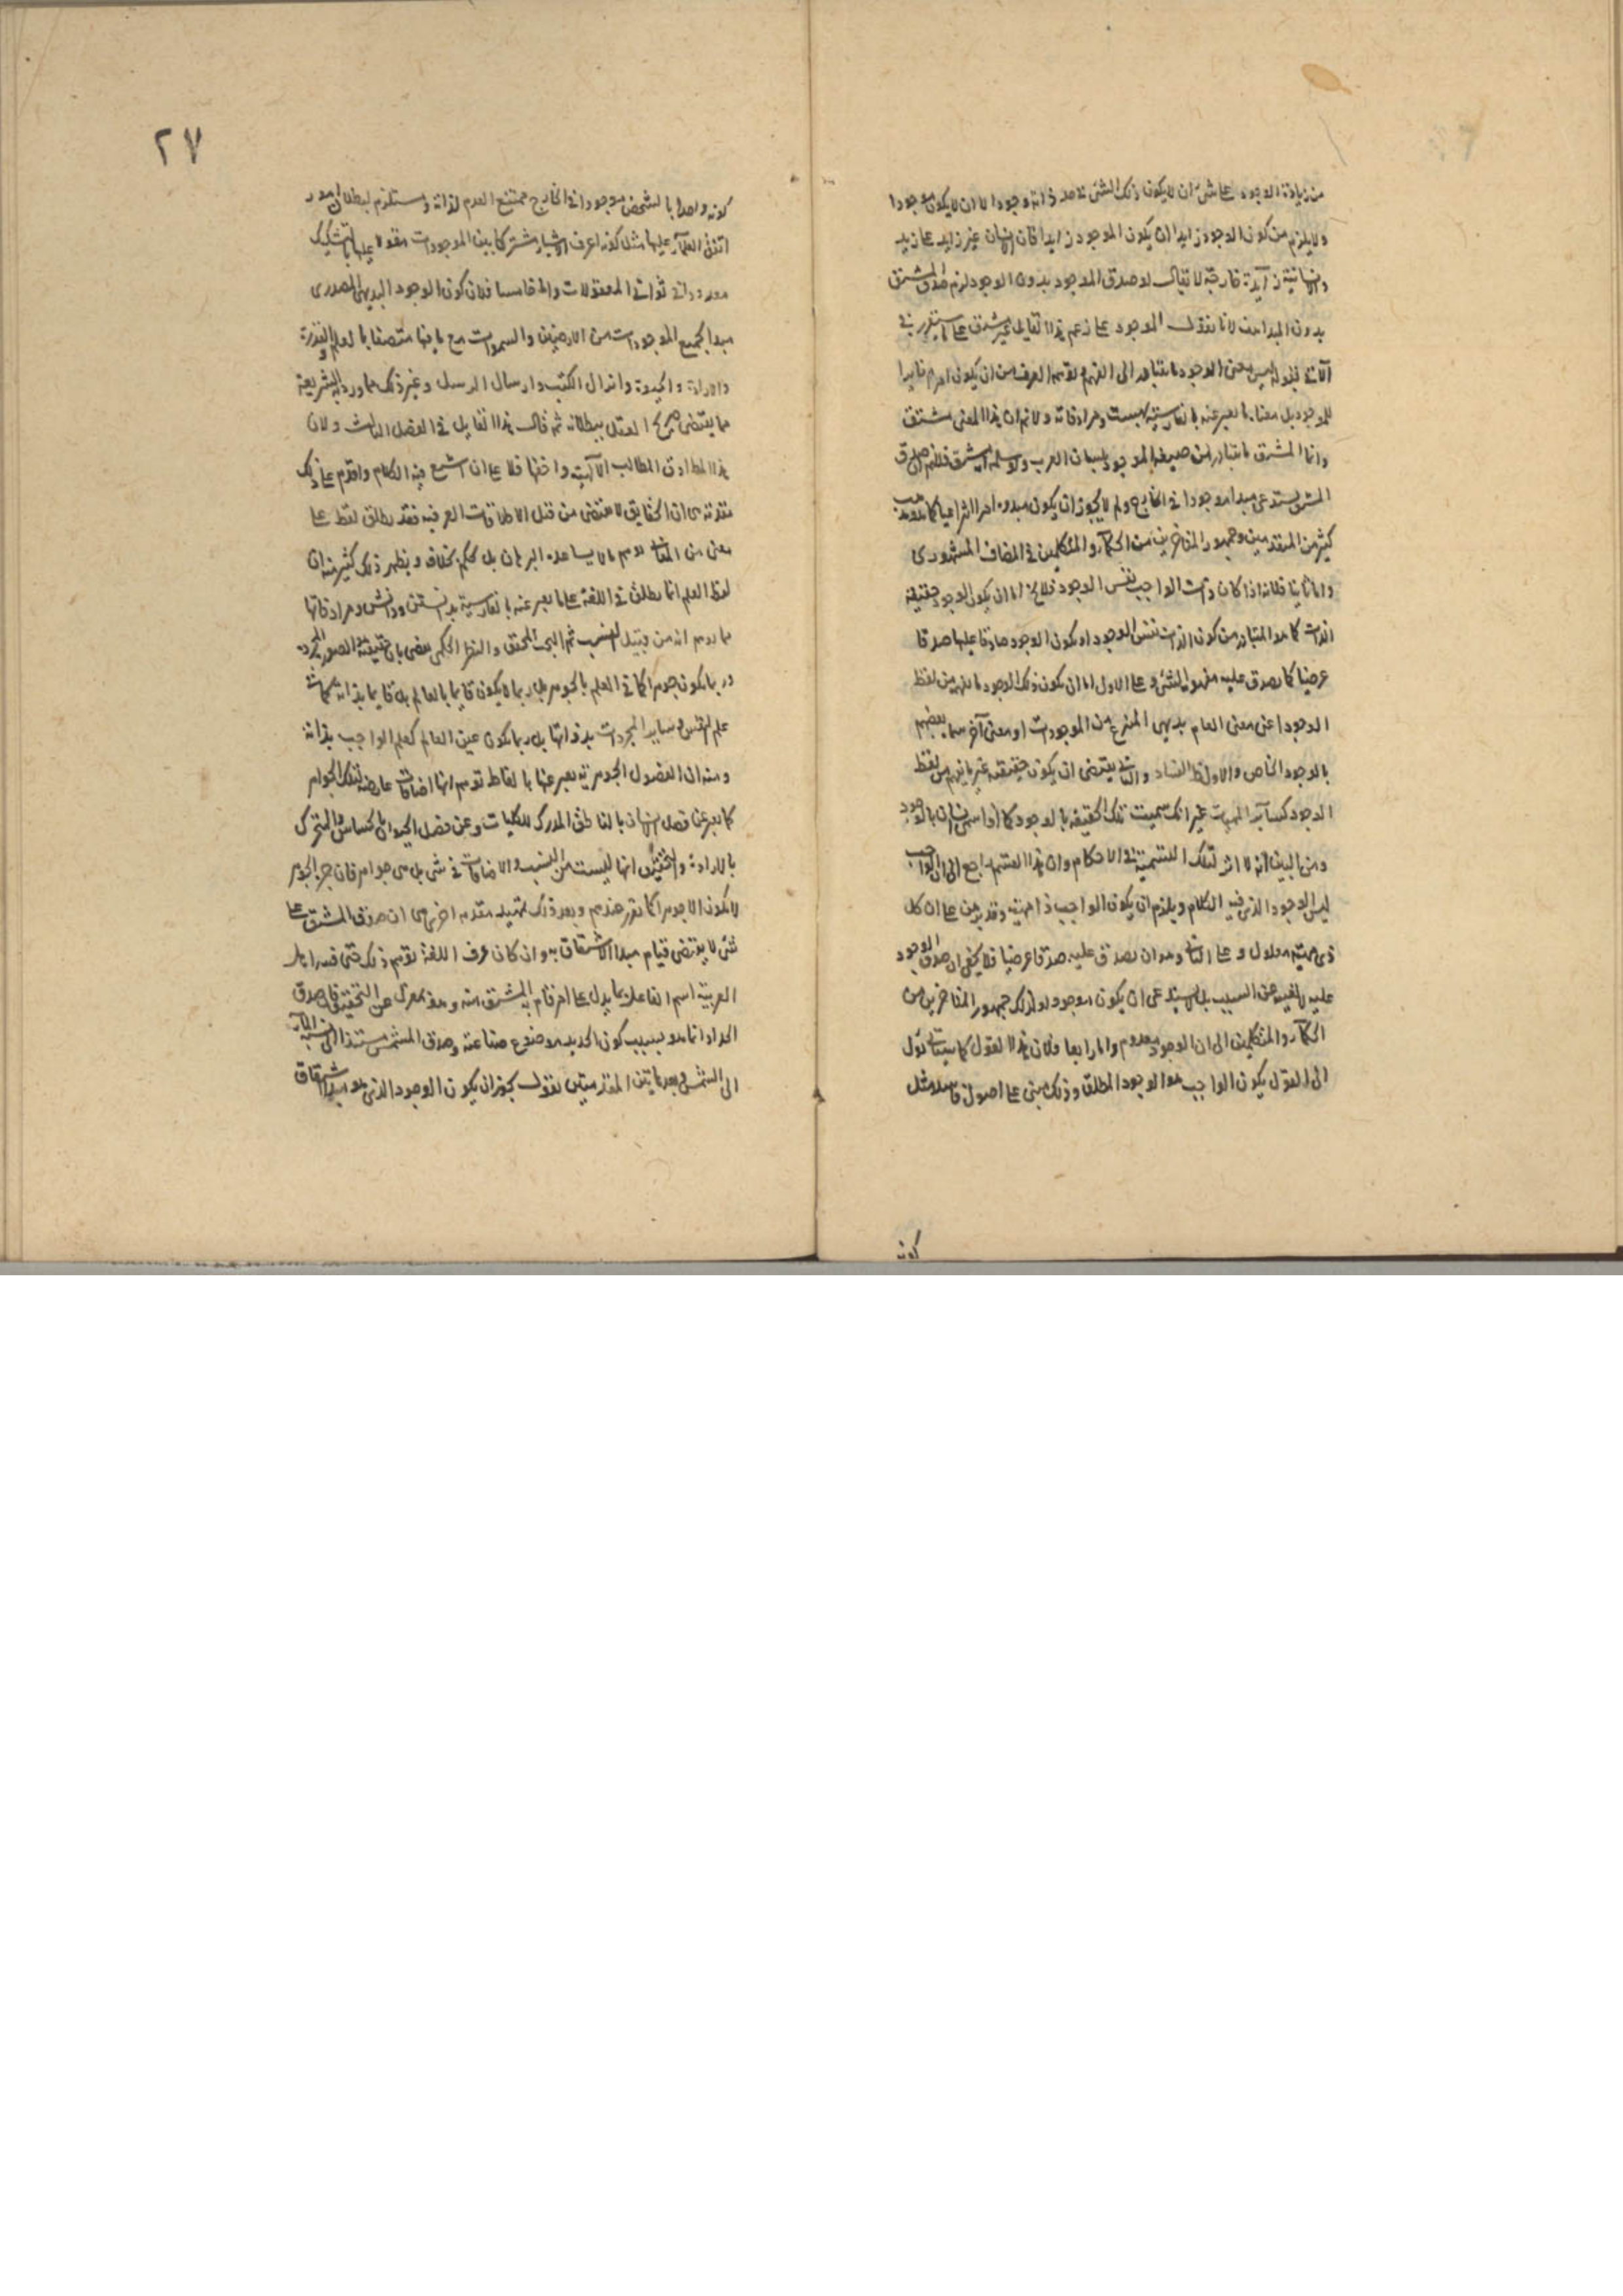 من زيادة الوجود على شئ ان لا يكون ذلك الشئ في حد ذاته وجودا لا ان لا يكون موجودا
ولا يلزم من كون الوجود زايدا ان يكون الموجود زايدا فان الانسان غير زايد على زيد
والانسانية زايدة خارجة لا يقال لو صدق الموجود بدون الوجود لزم صدق المشتق
بدون المبدأ لانا نقول الموجود على زعم هذا القايل غير مشتق على ما سيقرر في
الآتي بقوله ليس معنى الوجود ما يتبادر الى الفهم ويوهمه العرف من ان يكون امرا مغايرا
للموجود بل معناه ما يعبر عنه بالفارسية بهست ومرادفاته ولا نم ان هذا المعنى مشتق
وانما المشتق ما يتبادر من صيغة الموجود بلسان العرب ولو سلم انه مشتق فلا نم ان صدق
المشتق يستدعي مبدأ موجودا في الخارج ولم لا يجوز ان يكون مبدؤه امرا انتزاعيا كما هو مذهب
كثير من المتقدمين وجمهور المتاخرين من الحكماء والمتكلمين في المضاف المشهوري
واما ثانيا فلانه اذا كان ذات الواجب نفس الوجود فلا يخ اما ان يكون الوجود حقيقة
الذات كما هو المتبادر من كون الذات نفس الوجود او يكون الوجود صادقا عليها صدقا
عرضيا كما يصدق عليه مفهوم الشئ وعلى الاول اما ان يكون ذلك الوجود ما يفهم من لفظ
الوجود اعني معنى العام بديهي المنتزع من الموجودات او معنى آخر سماه بعضهم
بالوجود الخاص والاول ظ الفساد والثاني يقتضي ان يكون حقيقته غير ما يفهم من لفظ
الوجود كساير المهيات غير انك سميت تلك الحقيقة بالوجود كما اذا سمى انسان بالوجود
ومن البين انه لا اثر لتلك التسمية في الاحكام وان هذا القسم راجع الى ان الواجب
ليس الوجود الذي فيه الكلام ويلزم ان يكون الواجب ذا مهية وقد برهن على ان كل
ذي مهية معلول وعلى الثاني وهو ان يصدق عليه صدقا عرضيا فلا يخفى ان صدق الوجود
عليه لا يغنيه عن السبب بل يستدعي ان يكون موجودا ولذلك جمهور المتاخرين من
الحكماء والمتكلمين الى ان الوجود معدوم واما رابعا فلان هذا القول كما سيتاتى يؤل
الى القول بكون الواجب هو الوجود المطلق وذلك مبنى على اصول فاسدة مثل
كونه
٢٧
كونه واحدا بالشخص موجودا في الخارج ممتنع العدم لذاته ومستلزم لبطلان امور
اتفق العقلاء عليها مثل كونه اعرف الاشياء مشتركا بين الموجودات مقولا عليها بالتشكيك
معدودا في ثواني المعقولات واما خامسا فلان كون الوجود البديهي المصدري
مبدأ لجميع الموجودات من الارضين والسموات مع ما فيها متصفا بالعلم والقدرة
والارادة والحيوة وانزال الكتب وارسال الرسل وغير ذلك مما ورد به الشريعة
مما يقتضي صريح العقل ببطلانه ثم قال هذا القايل في الفصل الثالث ولان
هذا المط ادق المطالب الآلهية واخفها فلا على ان اشبع فيه الكلام واقدم على ذلك
مقدمة هي ان الحقايق لا يقتضى من قبل الاطلاقات العرفية فقد يطلق لفظ على
معنى من المعاني يوهم ما لا يساعده البرهان بل يحكم بخلافه ونظير ذلك كثير منه ان
لفظ العلم انما يطلق في اللغة على ما يعبر عنه بالفارسية بدانستن ودانش ومرادفاتها
مما يوهم انه من قبيل النسب ثم البحث المحقق والنظر الحكمى يقضى بان حقيقته هو الصور المجردة
وربما يكون جوهرا كما في العلم بالجوهر بل ربما لا يكون قايما بالعالم بل قايما بذاته كما في
علم النفس وساير المجردات بذواتها بل ربما يكون عين العالم كعلم الواجب بذاته
ومنه ان الفصول الجوهرية يعبر عنها بالفاظ توهم انها اضافات عارضة لتلك الجواهر
كما يعبر عن فصل الانسان بالناطق المدرك للكليات وعن فصل الحيوان بالحساس والمتحرك
بالارادة والتحقيق انها ليست من النسب والاضافات في شئ بل هي جواهر فان جزء الجوهر
لا يكون الا جوهرا كما تقرر عندهم وبعد ذلك تمهيد مقدمة اخرى هي ان صدق المشتق على
شئ لا يقتضي قيام مبدأ الاشتقاق به وان كان عرف اللغة توهم ذلك حتى فسر اهل
العربية اسم الفاعل بما يدل على امر قام به المشتق منه وهو بمعزل عن التحقيق فان صدق
الحداد انما هو بسبب كون الحديد موضوع صناعته وصدق المشمس مستند الى نسبة الماء
الى الشمس وبعد هاتين المقدمتين نقول يجوز ان يكون الوجود الذي هو مبدأ الاشتقاق